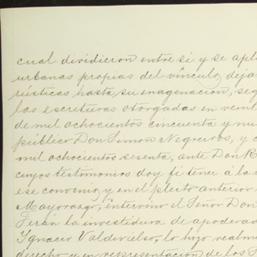 cual dividieron entre si y se apli
urbanas propias del vínculo, deja
rústicas hasta su enagenacion, seg
las escrituras otorgadas en veint
de mil ochocientos cincuenta y nu
público Don Simon Negueiros, y o
mil ochocientos sesenta, ante Don R
cuyos testimonios doy fé tener á la
ese convenio, y en el pleito anterior
Mayorazgo, intervino el Señor Don
Terán la investidura de apoderad
Ygnacio Valdivielso, lo hizo realm
derecho y en representacion de los